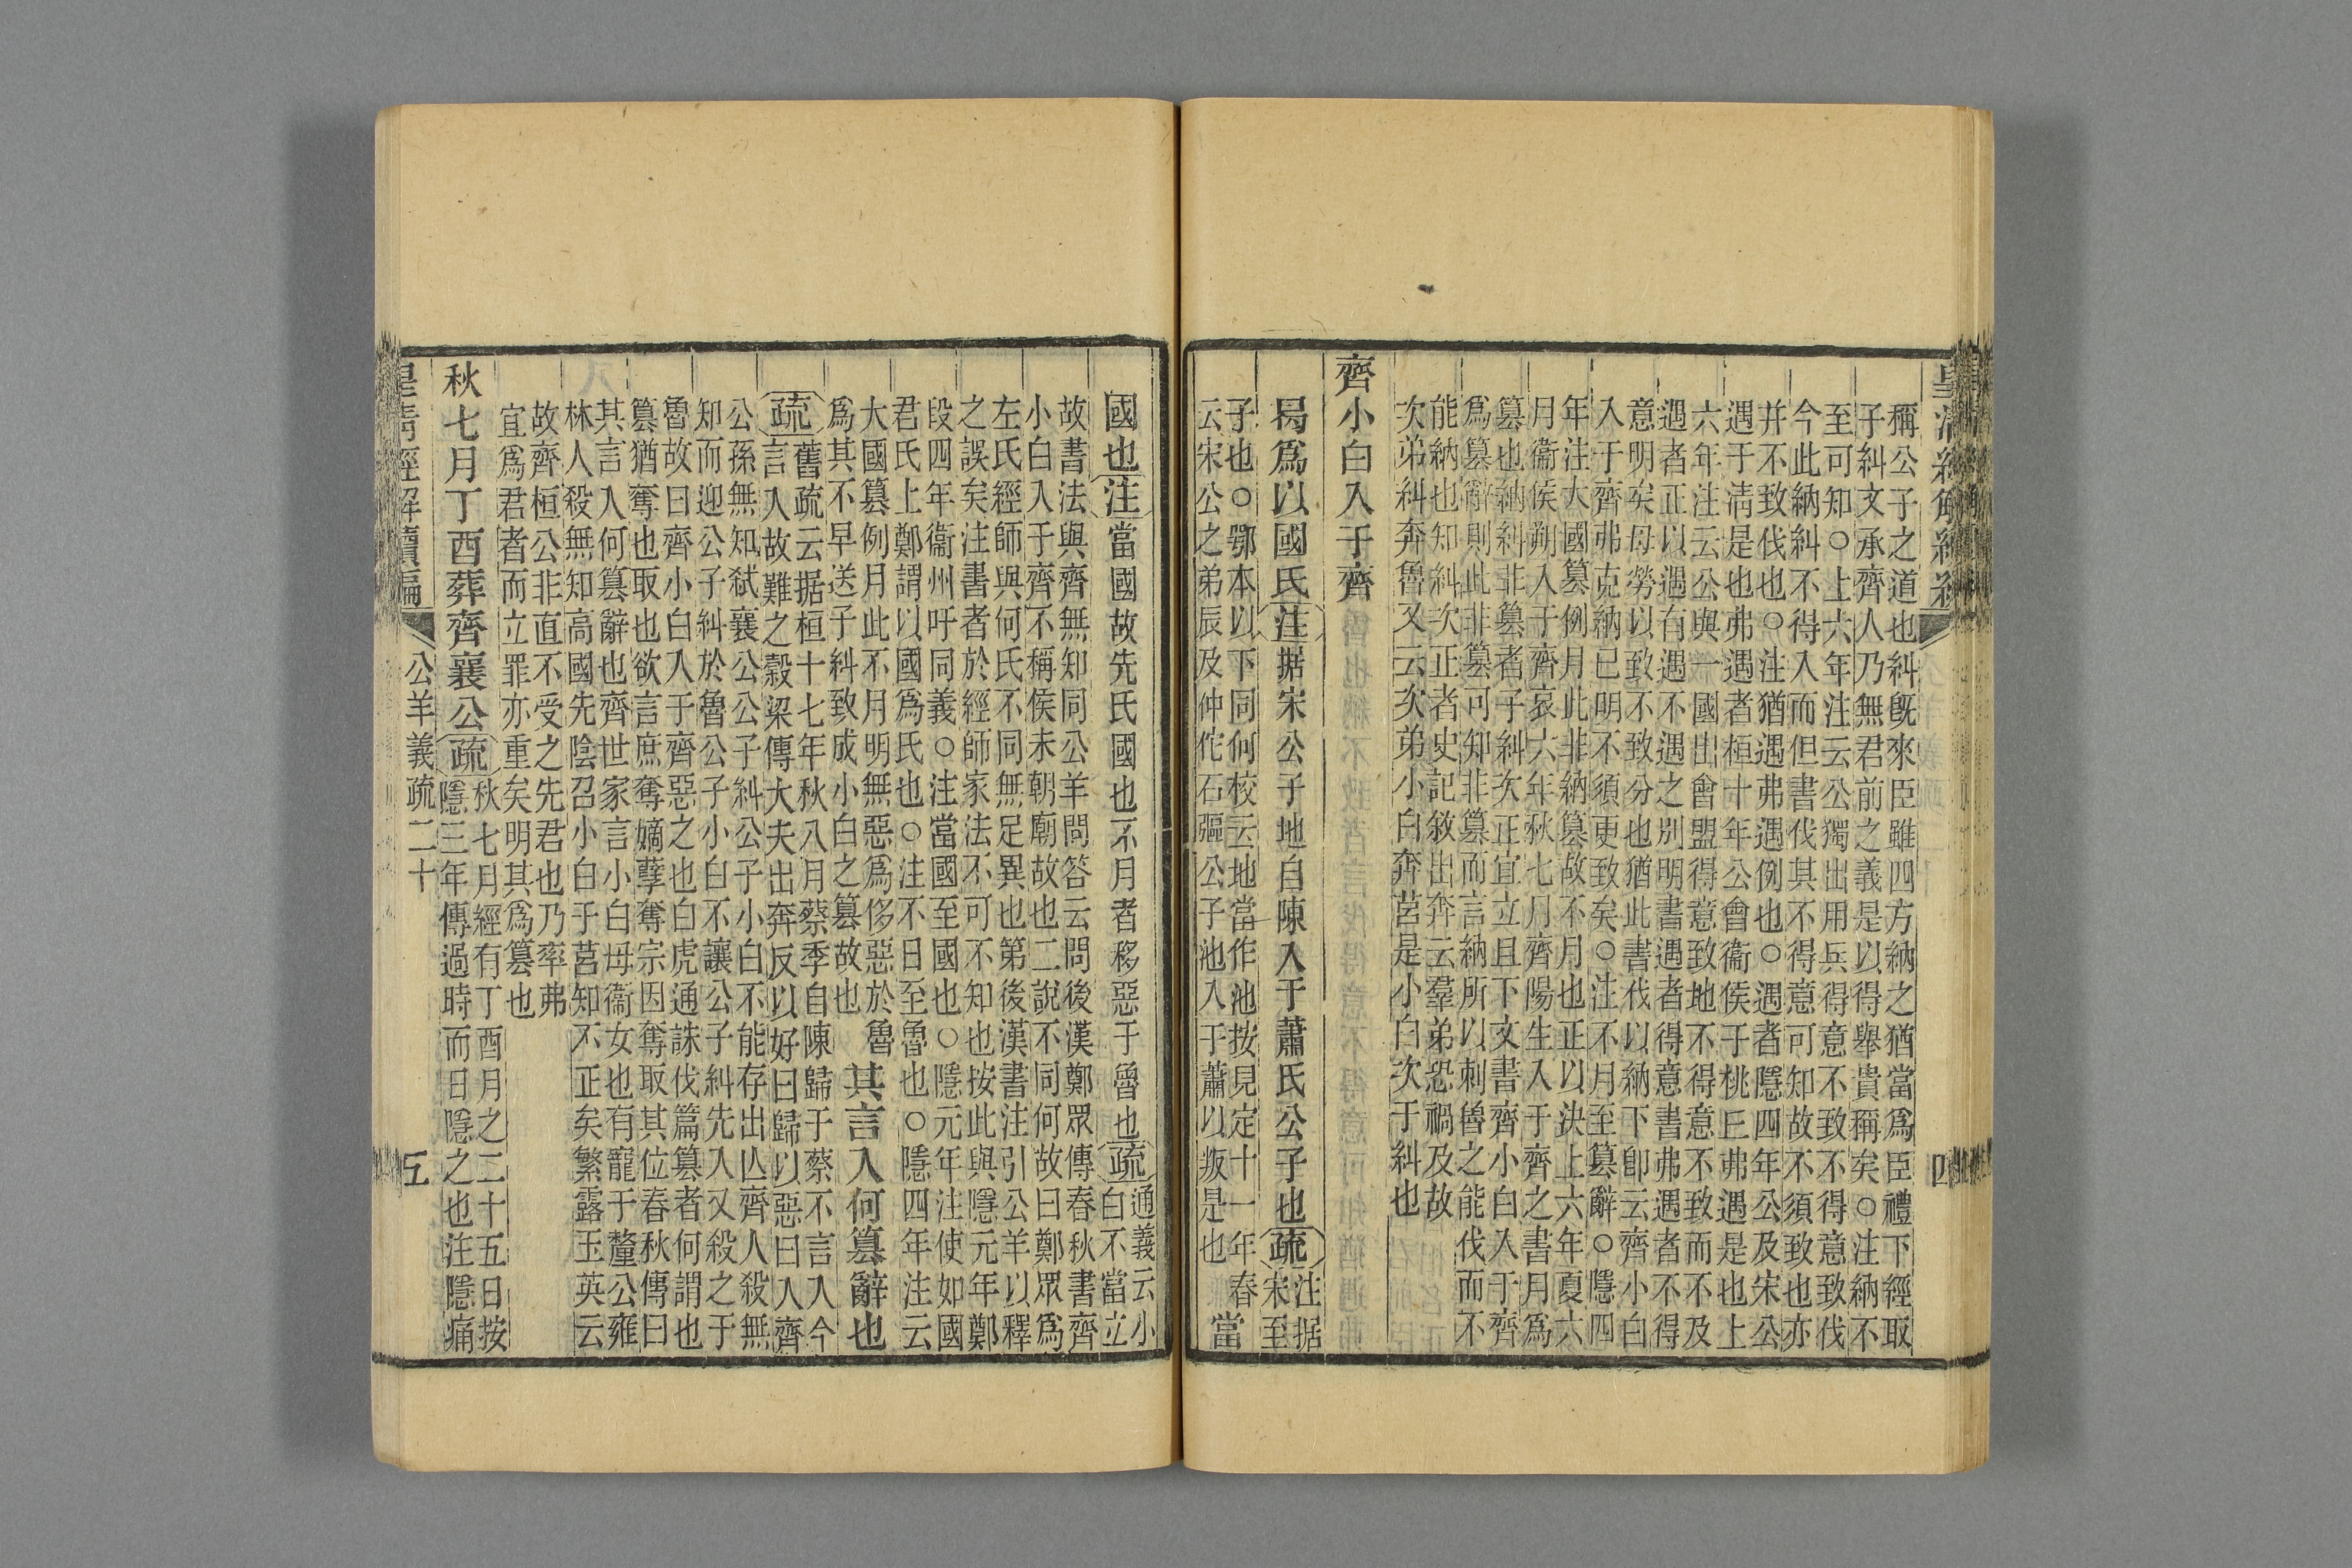 稱公子之道也糾旣來臣雖四方納之猶當爲臣禮下經取
子糾文承齊人乃無君前之義是以得舉貴稱矣○注納不
至可知○上六年注云公獨出用兵得意不致不得意致伐
今此納糾不得入而但書伐其不得意可知故不須致也亦
并不致伐也○注猶遇弗遇例也○遇者隱四年公及宋公
遇于淸是也弗遇者桓十年公會衞侯于桃丘弗遇是也上
六年注云公與一國出會盟得意致地不得意不致而不及
遇者正以遇有遇不遇之別明書遇者得意書弗遇者不得
意明矣毋勞以致不致分也猶此書伐以納下卽云齊小白
入于齊弗克納已明不須更致矣○注不月至簒辭○隱四
年注大國簒例月此非納簒故不月也正以決上六年夏六
月衞侯朔入于齊哀六年秋七月齊陽生入于齊之書月爲
簒也納糾非簒者子糾次正宜立且下文書齊小白入于齊
爲簒辭則此非簒可知非簒而言納所以刺魯之能伐而不
能納也知糾次正者史記敘出奔云羣弟恐禍及故
次弟糾奔魯又云次弟小白奔莒是小白次于糾也
齊小白入于齊
曷爲以國氏注据宋公子地自陳入于蕭氏公子也疏注据宋至
子也○鄂本以下同何校云地當作池按見定十一年春
云宋公之弟辰及仲佗石彄公子池入于蕭以叛是也當
國也注當國故先氏國也不月者移惡于魯也疏通義云小白不當立
故書法與齊無知同公羊問答云問後漢鄭眾傳春秋書齊
小白入于齊不稱侯未朝廟故也二說不同何故曰鄭眾爲
左氏經師與何氏不同無足異也第後漢書注引公羊以釋
之誤矣注書者於經師家法不可不知也按此與隱元年鄭
段四年衞州吁同義○注當國至國也○隱元年注使如國
君氏上鄭謂以國爲氏也○注不日至魯也○隱四年注云
大國簒例月此不月明無惡爲侈惡於魯
爲其不早送子糾致成小白之簒故也其言入何簒辭也
疏舊疏云据桓十七年秋八月蔡季自陳歸于蔡不言入今
言入故難之穀梁傳大夫出奔反以好曰歸以惡曰入齊
公孫無知弒襄公公子糾公子小白不能存出亾齊人殺無
知而迎公子糾於魯公子小白不讓公子糾先入又殺之于
魯故曰齊小白入于齊惡之也白虎通誅伐篇簒者何謂也
簒猶奪也取也欲言庶奪嫡孽奪宗因奪取其位春秋傳曰
其言入何簒辭也齊世家言小白母衞女也有寵于釐公雍
林人殺無知高國先陰召小白于莒知不正矣繁露玉英云
故齊桓公非直不受之先君也乃率弗
宜爲君者而立罪亦重矣明其爲簒也
秋七月丁酉葬齊襄公疏秋七月經有丁酉月之二十五日按
隱三年傳過時而日隱之也注隱痛
公羊義疏二十
五